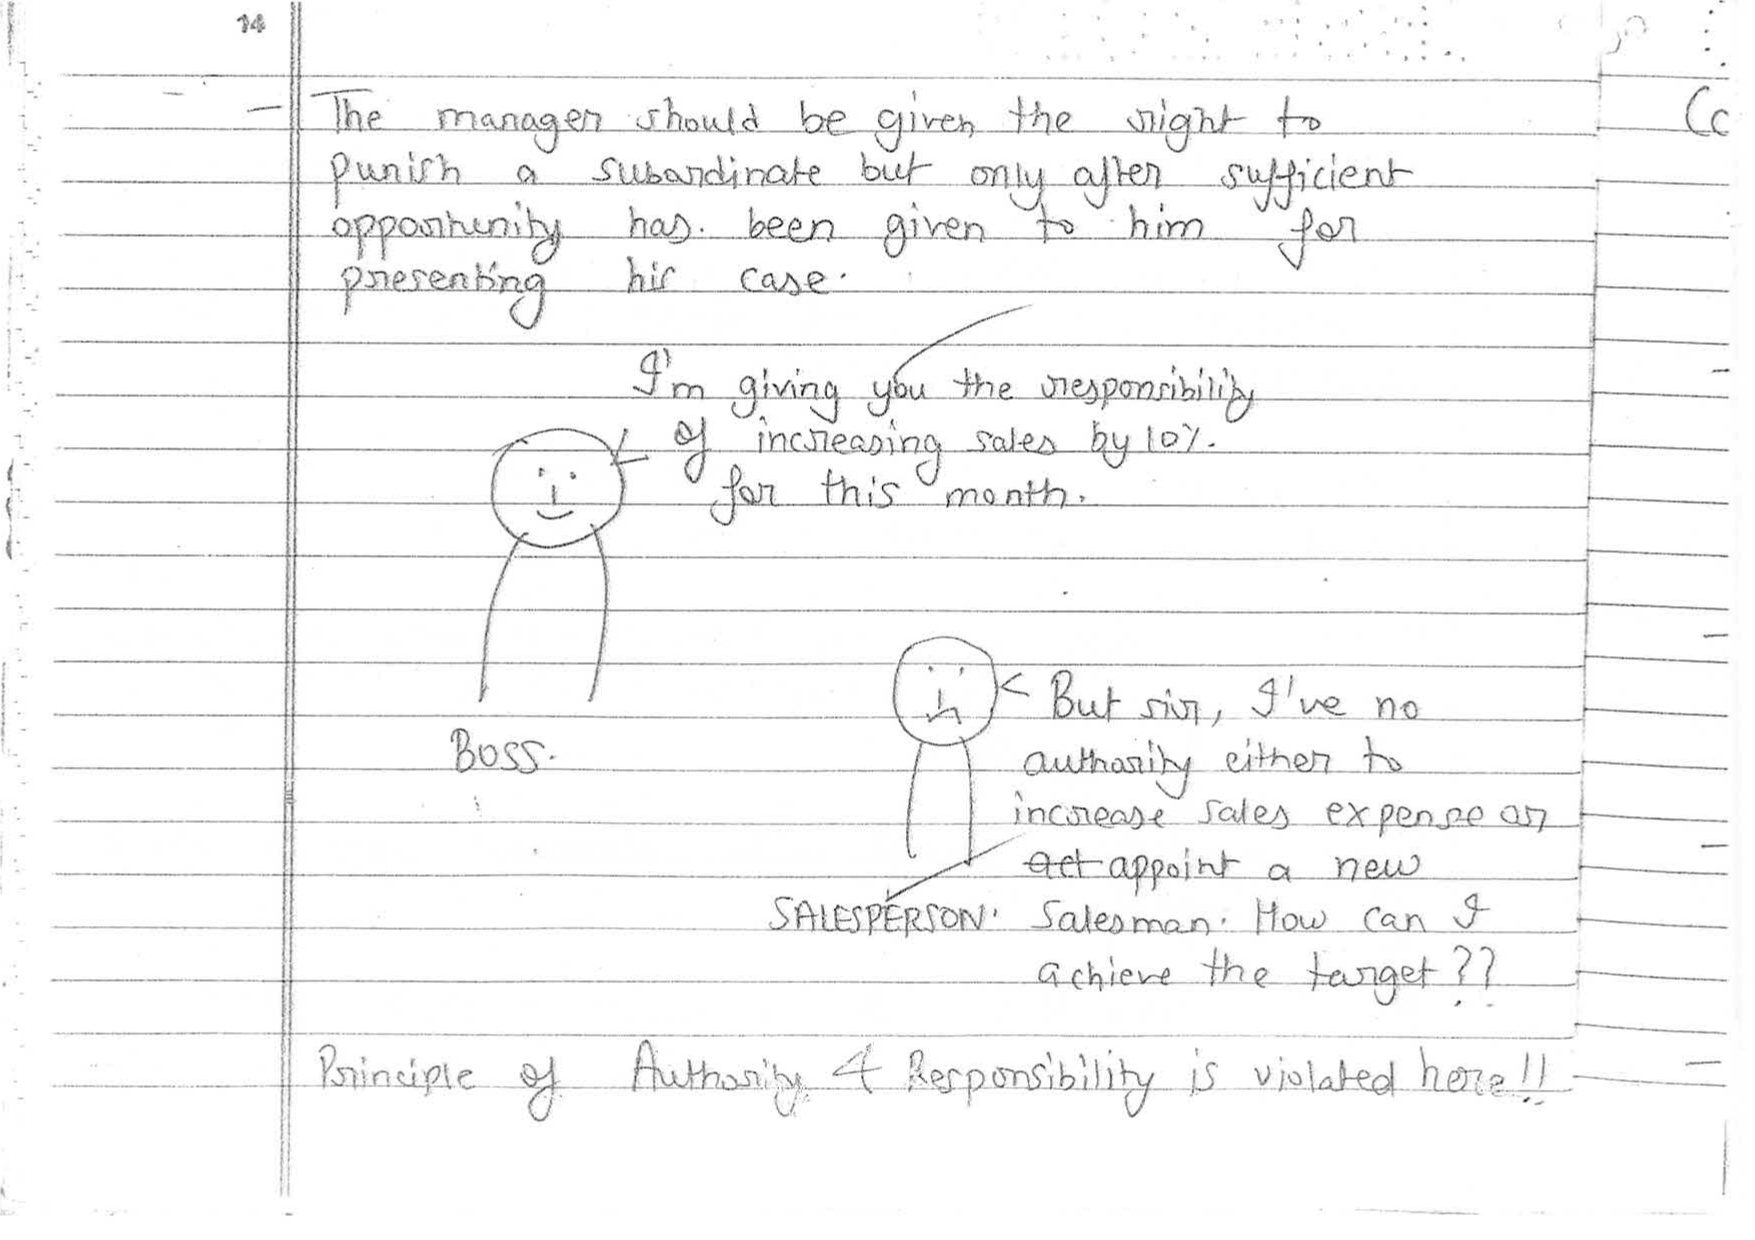 14
- The manager should be given the right to
punish a subordinate but only after sufficient
opportunity has been given to him for
presenting his case.
I'm giving you the responsibility
of increasing sales by 10%.
for this month.
BOSS.
But sir, I've no
authority either to
increase sales expense or
act appoint a new
SALESPERSON. Salesman. How can I
achieve the target??
Principle of Authority & Responsibility is violated here!!